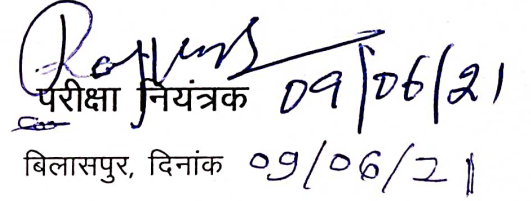 परीक्षा नियंत्रक 09/06/21
बिलासपुर, दिनांक 09/06/21